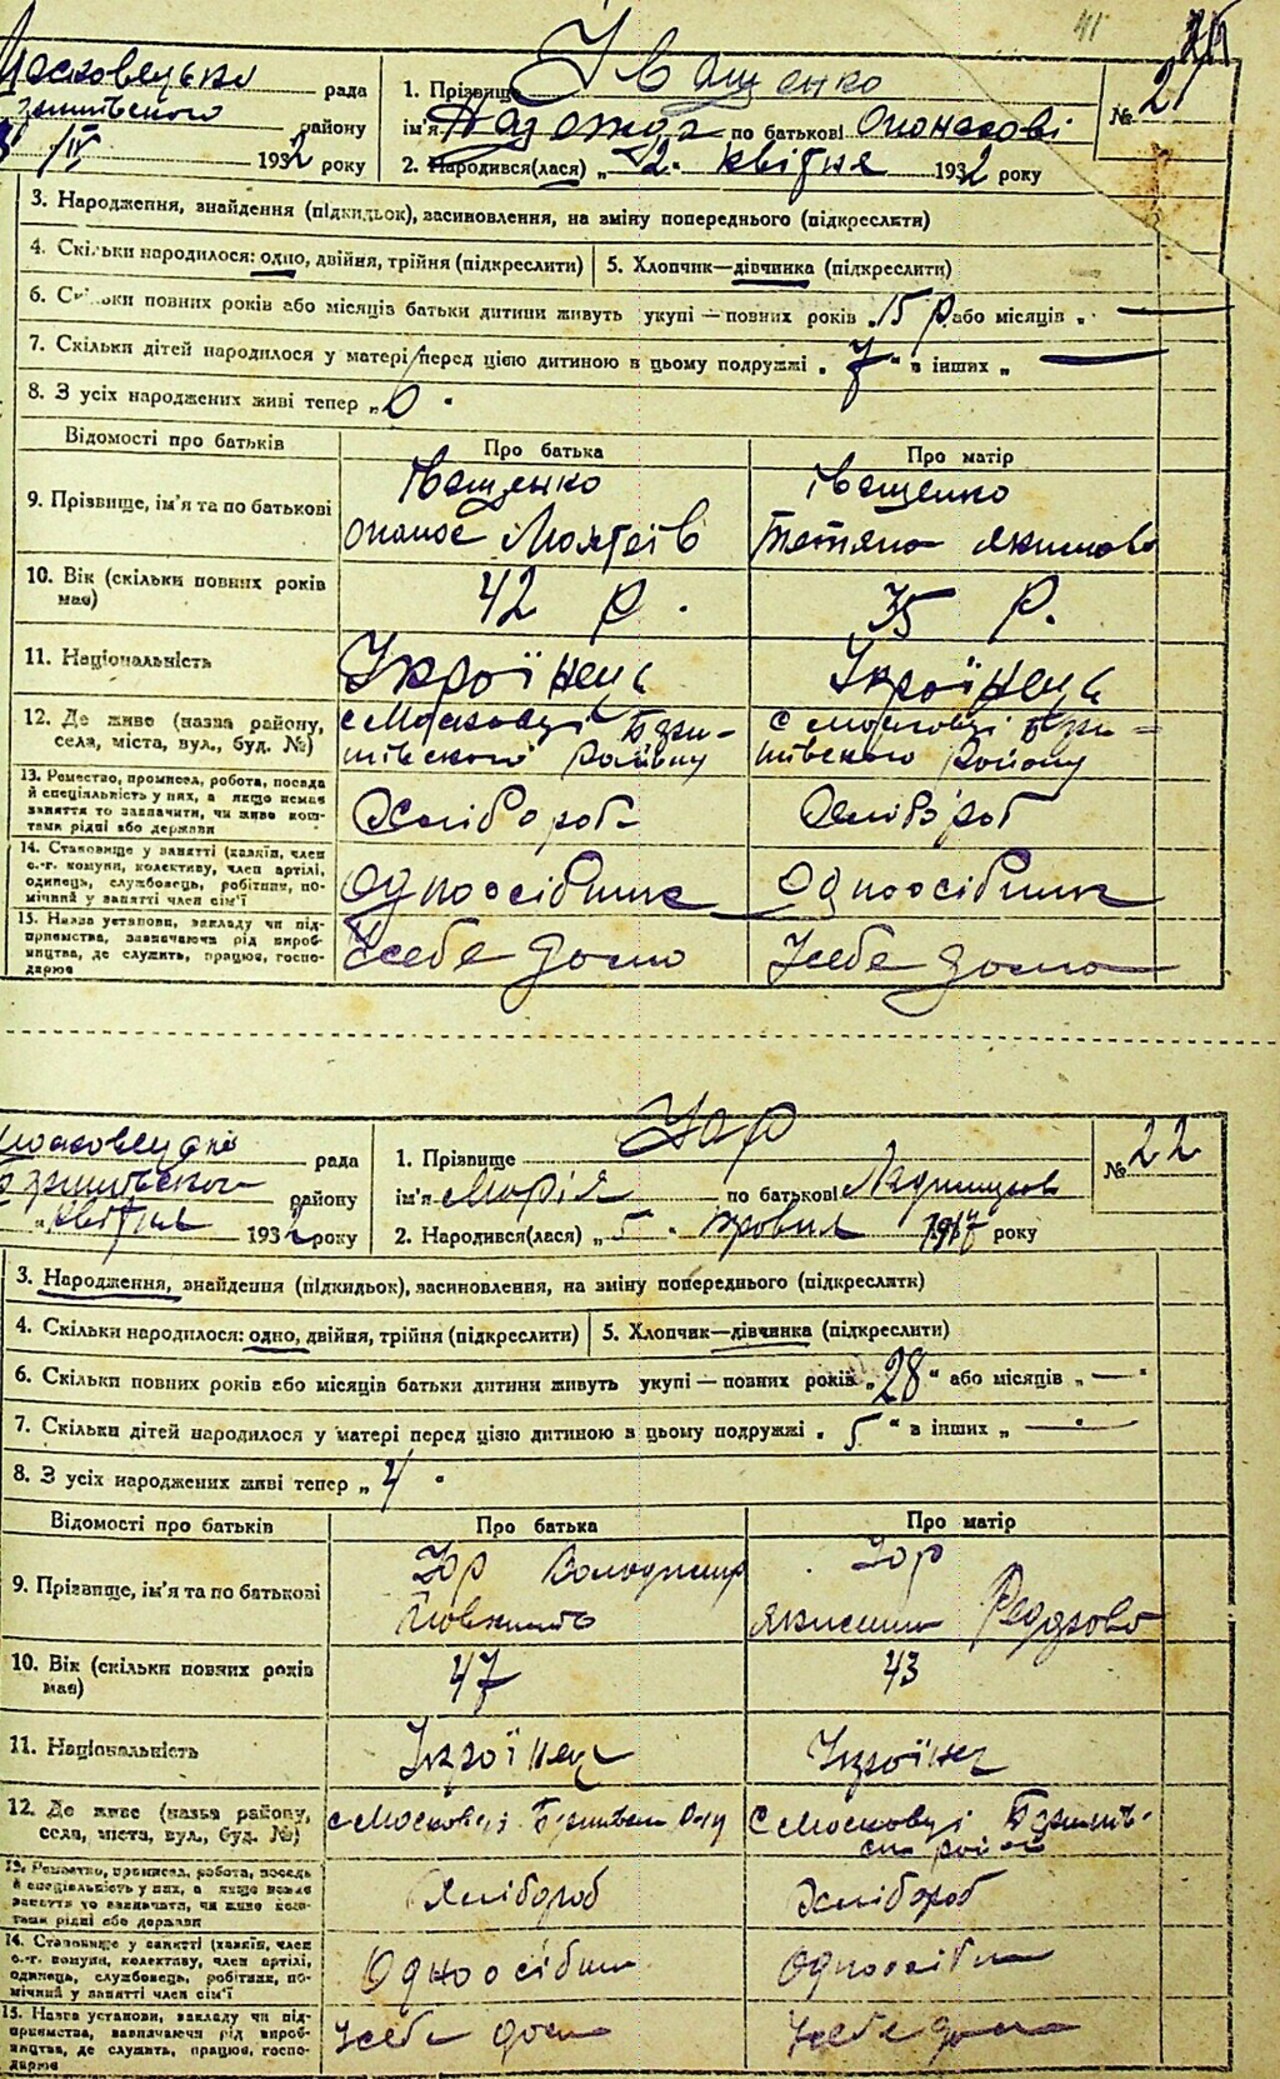 41
Московецька рада
району
/IV 1932 року
1. Прізвище Іващенко
ім'я Надежда по батькові Опонасові
2. Народився(лася) „ 12 " квітня 1932 року
№ 21
3. Народження, знайдення (підкидьок), засиновлення, на зміну попереднього (підкреслити)
4. Скільки народилося: одно, двійня, трійня (підкреслити) 5. Хлопчик—дівчинка (підкреслити)
6. Скільки повних років або місяців батьки дитини живуть укупі — повних років „ 15 р. або місяців „ —
7. Скільки дітей народилося у матері перед цією дитиною в цьому подружжі „ 7 " в інших „ —
8. З усіх народжених живі тепер „ 6 "
Відомості про батьків Про батька Про матір
9. Прізвище, ім'я та по батькові
Іващенко
Опанас
Іващенко
Тетяна Якимова
10. Вік (скільки повних років має) 42 р. 35 р.
11. Національність Українець Українець
12. Де живе (назва району, села, міста, вул., буд. №)
с Московці Бзри-
шівского Району
с Московці Бзри-
шівского Району
13. Ремество, промисел, робота, посада
й спеціяльність у них, а якщо немає
заняття то зазначити, чи живе кош-
тами рідні або держави
Хлібороб Хлібороб
14. Становище у занятті (хазяїн, член
с.-г. комуни, колективу, член артілі,
одинець, службовець, робітник, по-
мічний у занятті член сім'ї
Одноосібник Одноосібник
15. Назва установи, закладу чи під-
приємства, зазначаючи рід вироб-
ництва, де служить, працює, госпо-
дарює
Усебе дома Усебе дома
рада
району
„ квітня 1932 року
1. Прізвище Юр
ім'я Марія по батькові
2. Народився(лася) „ 5 " 1917 року
№ 22
3. Народження, знайдення (підкидьок), засиновлення, на зміну попереднього (підкреслити)
4. Скільки народилося: одно, двійня, трійня (підкреслити) 5. Хлопчик—дівчинка (підкреслити)
6. Скільки повних років або місяців батьки дитини живуть укупі — повних років „ 28 " або місяців „ — "
7. Скільки дітей народилося у матері перед цією дитиною в цьому подружжі „ 5 " в інших „ —
8. З усіх народжених живі тепер „ 4 "
Відомості про батьків Про батька Про матір
9. Прізвище, ім'я та по батькові
Юр Володимир
Юр
10. Вік (скільки повних років має) 47 43
11. Національність Українець Українец
12. Де живе (назва району, села, міста, вул., буд. №)
с Московці
с Московці
13. Ремество, промисел, робота, посада
й спеціяльність у них, а якщо немає
заняття то зазначити, чи живе кош-
тами рідні або держави
Хлібороб Хлібороб
14. Становище у занятті (хазяїн, член
с.-г. комуни, колективу, член артілі,
одинець, службовець, робітник, по-
мічний у занятті член сім'ї
Одноосібник Одноосібник
15. Назва установи, закладу чи під-
приємства, зазначаючи рід вироб-
ництва, де служить, працює, госпо-
дарює
Усебе дома Усебе дома